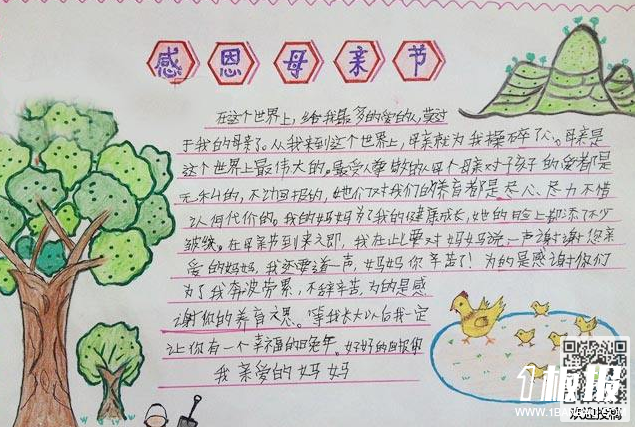 感恩母亲节
在这个世界上,给我最多的爱的人,莫过
于我的母亲了。从我来到这个世界上,母亲就为我操碎了心。母亲是
这个世界上最伟大的。最受人尊敬的人每个母亲对子孩子的爱都是
无私的,不讨回报的,她们对我们的养育都是尽心、尽力不惜
认何代价的。我的妈妈为了我的健康成长,她的脸上都添了不少
皱纹。在母亲节到来之即,我在此要对妈妈说一声谢谢您亲
爱的妈妈,我还要道一声,妈妈你辛苦了!为的是感谢你们
为了我奔波劳累,不辞辛苦,为的是感
谢你的养育之恩。等我长大以后我一定
让你有一个幸福的晚年。好好的
我亲爱的妈妈
板报
WWW.1BANBAO.COM